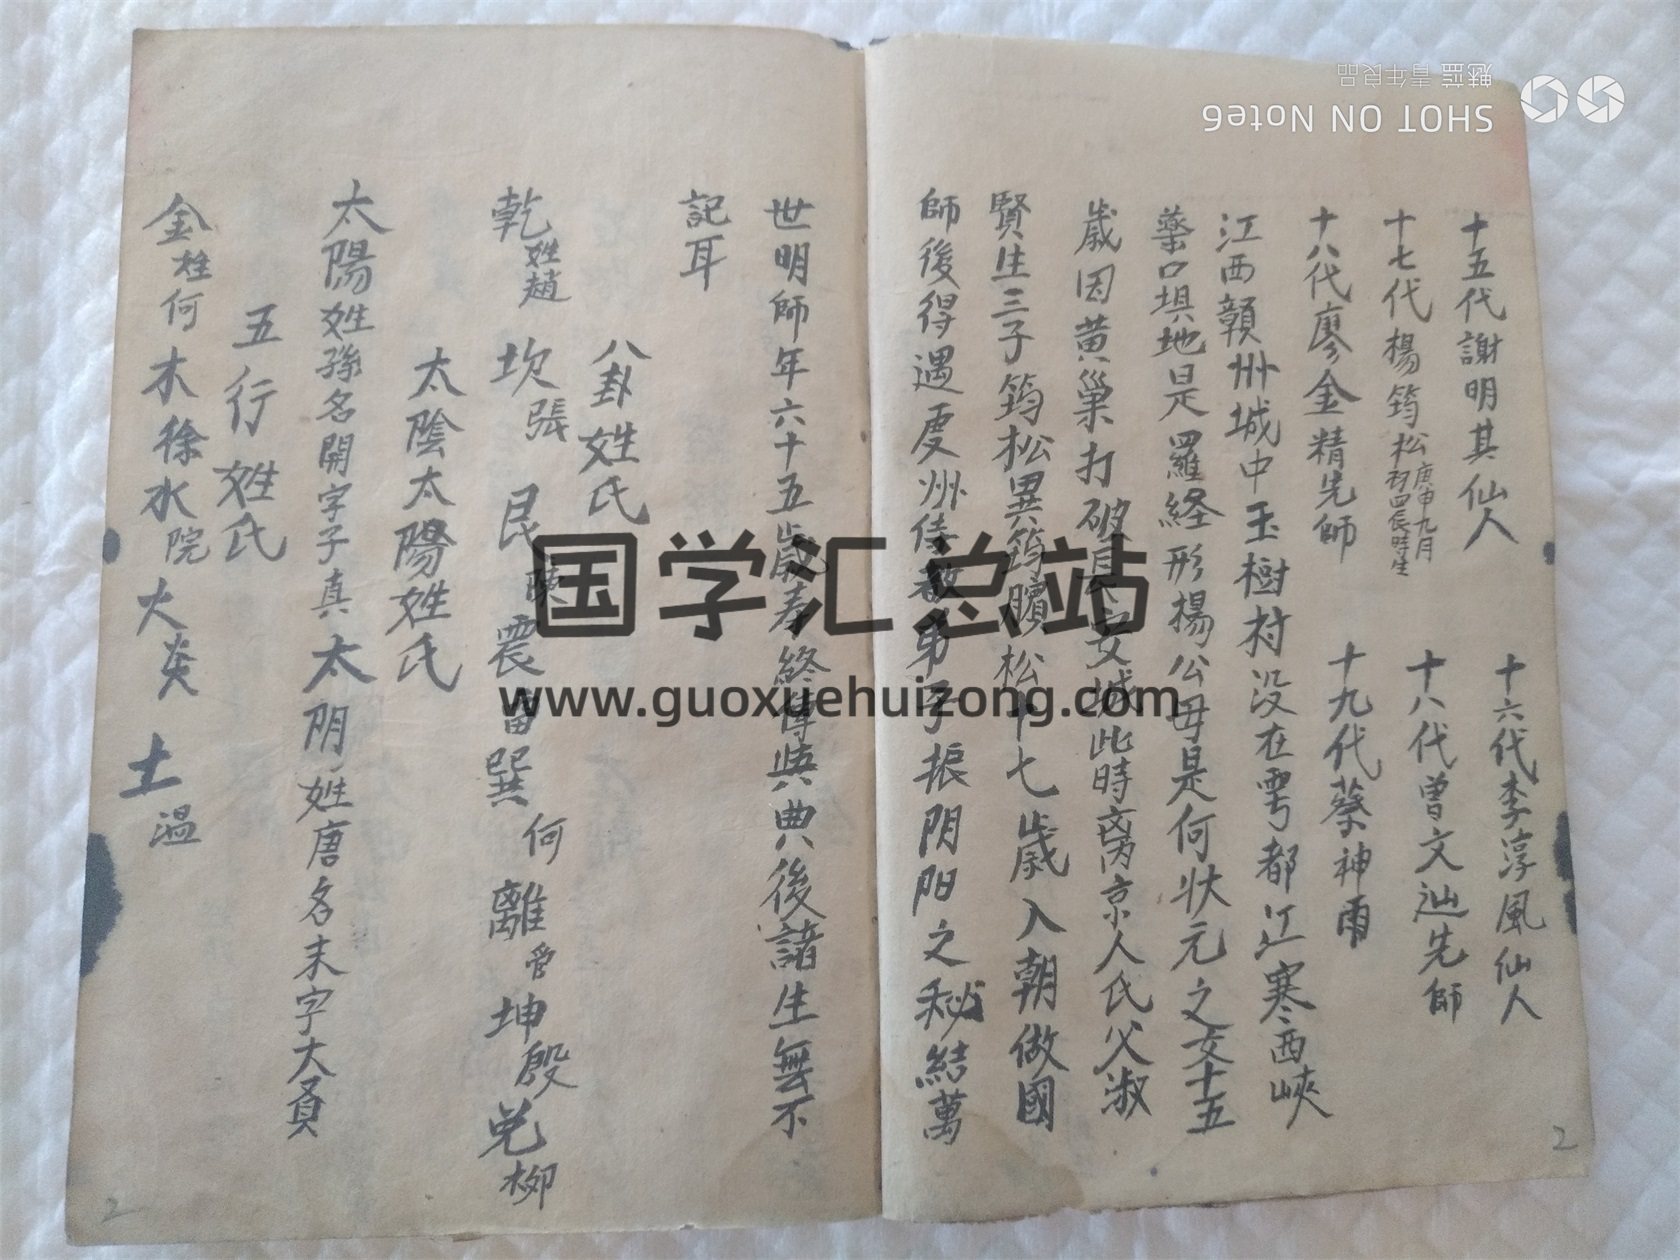 十五代謝明其仙人　十六代李淳風仙人
十七代楊筠松庚申九月初四辰時生　十八代曾文辿先師
十八代廖金精先師　十九代蔡神雨
江西贛州城中玉樹村没在雩都江寒西峽
藥口垻地是羅経形揚公母是何状元之女十五
歲因黄巢打破長安城此時离京人氏父淑
賢生三子筠松異筠牘松十七歲入朝做國
師後得遇虔州侍教弟子振阴阳之秘結萬
世明師年六十五歲壽終傳與典後諸生無不
記耳
八卦姓氏
乾姓趙　坎張　艮陳　震雷　巽何　離管　坤殷　兌柳
太陰太陽姓氏
太陽姓孫名開字子真　太阴姓唐名末字大員
五行姓氏
金姓何　木徐　水院　火炎　土温
SHOT ON Note6
魅蓝 青年良品
国学汇总站
www.guoxuehuizong.com
2
2